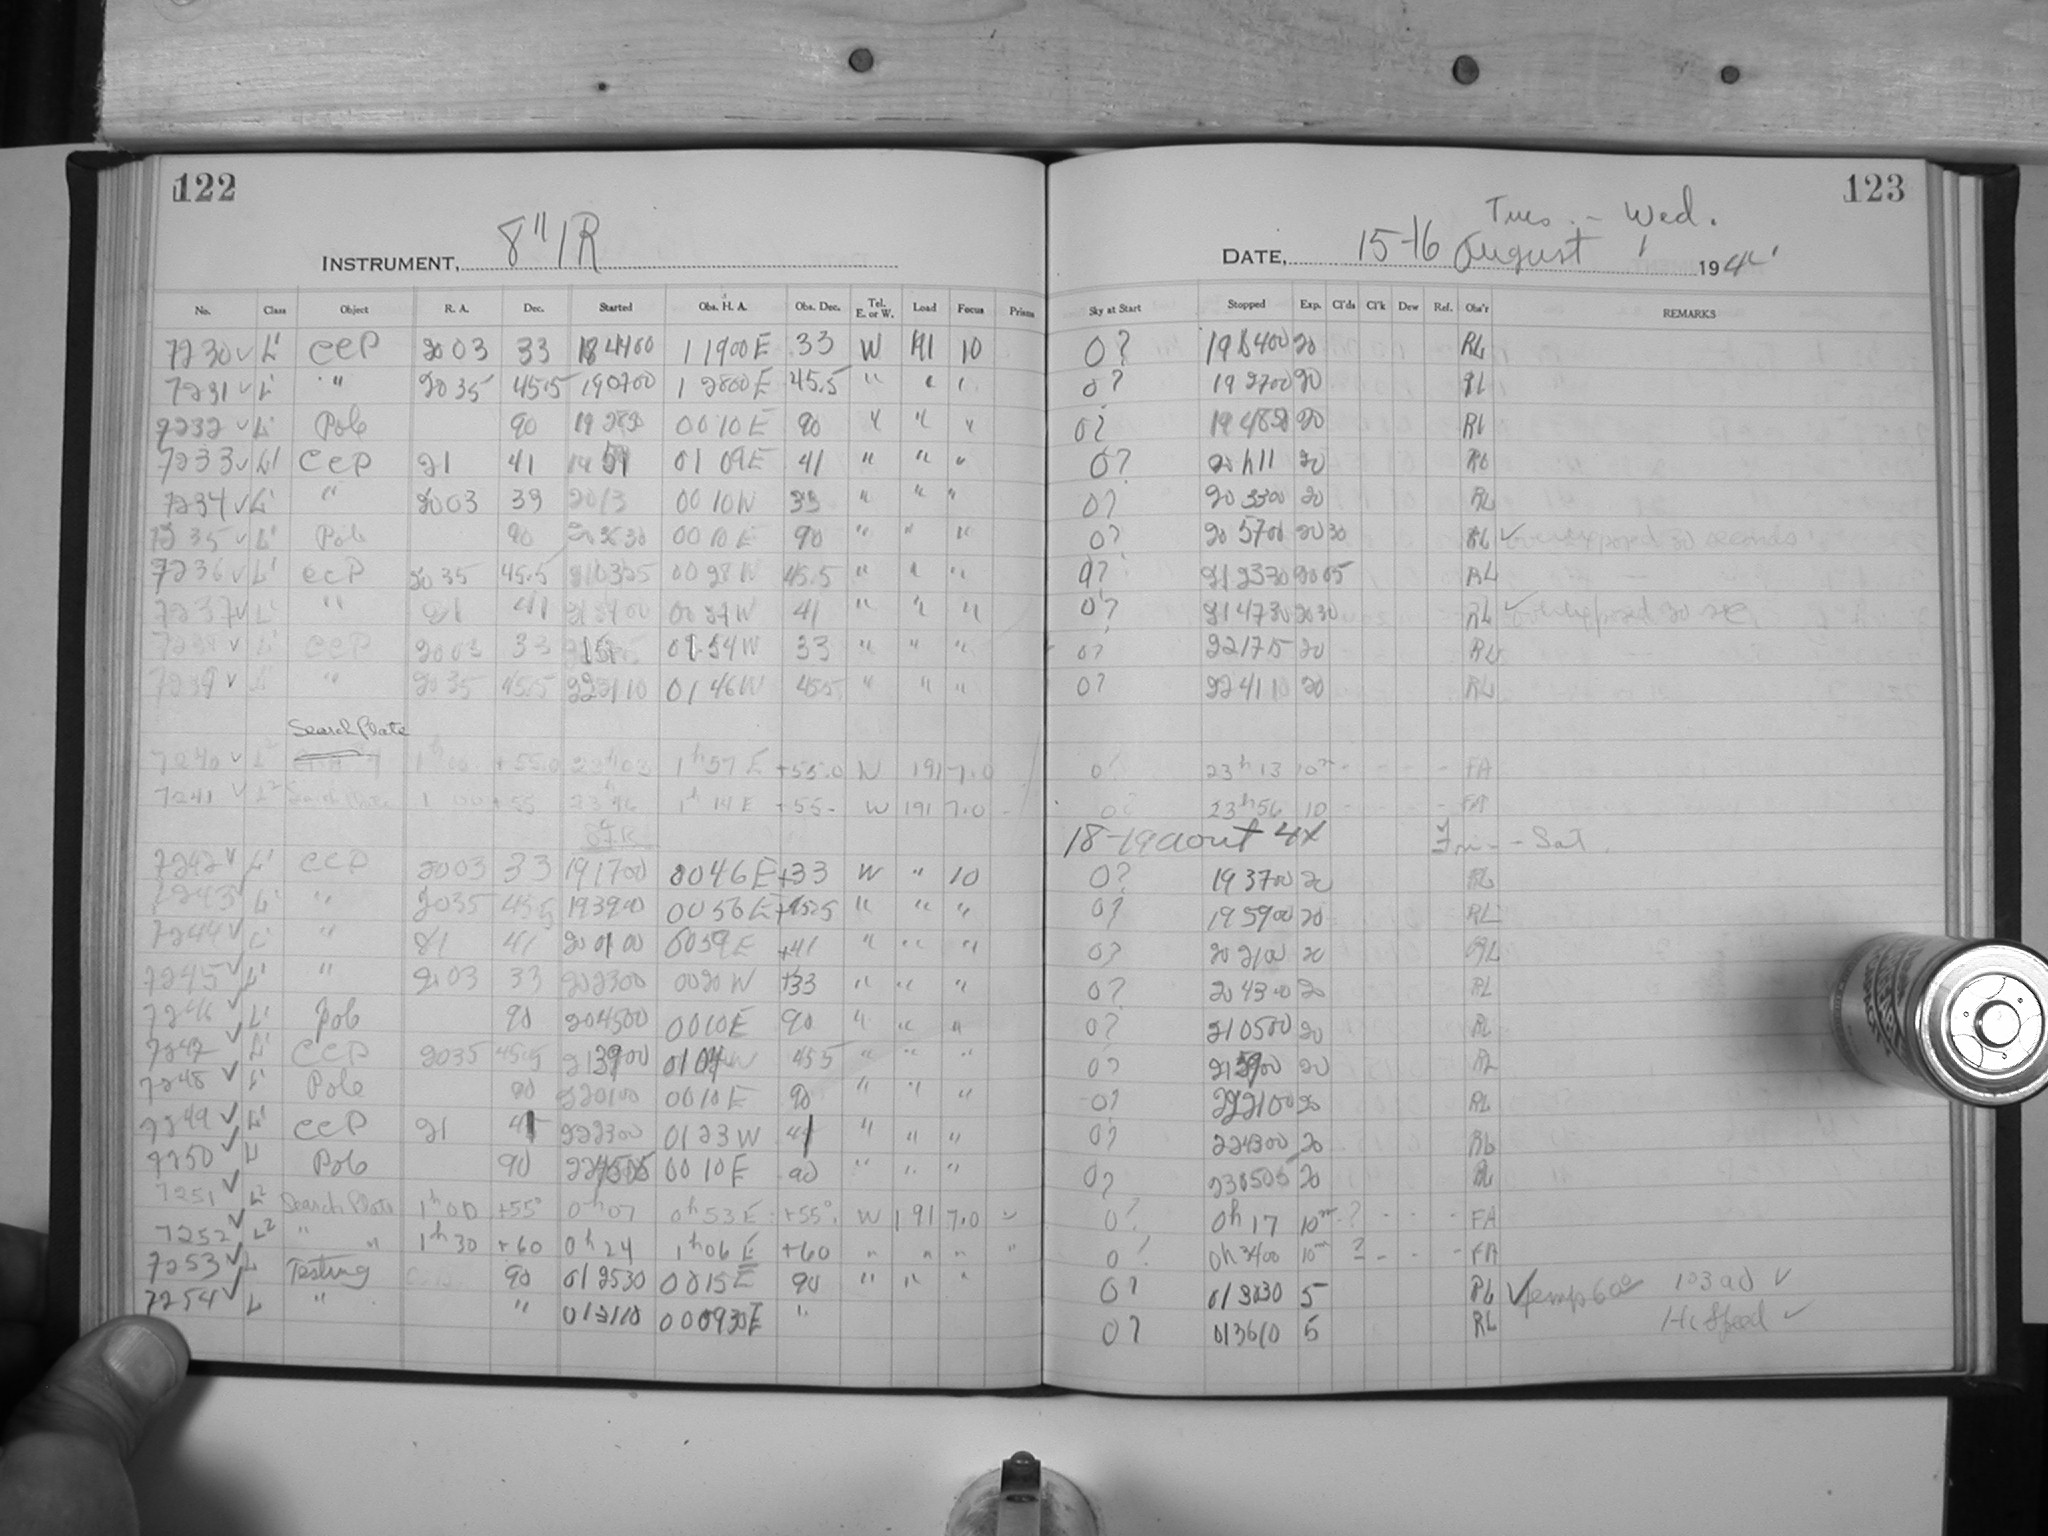 122
INSTRUMENT, 8" IR
No. Class Object R. A. Dec. Started Obs. H. A. Obs. Dec. Tel. E. or W. Load Focus Prism
7230 ✓ L' CCP 2003 33 184400 1 1900 E 33 W 191 10
7231 ✓ L' " 2035 45.5 190700 1 2800 E 45.5 " " "
7232 ✓ L' Pole 90 19 2830 0010 E 90 " " "
7233 ✓ L' CCP 21 41 01 09 E 41 " " "
7234 ✓ L' " 2003 33 2013 00 10 W 33 " " "
7235 ✓ L' Pole 90 203630 00 10 E 90 " " "
7236 ✓ L' CCP 2035 45.5 210325 00 28 W 45.5 " " "
7237 ✓ L' " 21 41 00 27 W 41 " " "
✓ L' CCP 2003 33 01 54 W 33 " " "
7239 ✓ L' " 2035 45.5 01 46 W 45.5 " " "
Search Plate
7240 ✓ L2 1h 00 +55.0 23h03 1h 57 E +55.0 W 191 7.0
7241 ✓ L2 Search Plate 1 00 +55 23h46 1h 14 E +55- W 191 7.0 -
7242 ✓ L' CCP 2003 33 191700 0046 E +33 W " 10
7243 ✓ L' " 2035 45.5 193900 0056 E +45.5 " " "
7244 ✓ L' " 21 41 200100 0059 E +41 " " "
7245 ✓ L' " 2003 33 202300 0020 W +33 " " "
7246 ✓ L' Pole 90 204500 0010 E 90 " " "
7247 ✓ L' CCP 2035 45.5 213900 0104 W 45.5 " " "
7248 ✓ L' Pole 90 220100 0010 E 90 " " "
7249 ✓ L' CCP 21 41 222300 0123 W 41 " " "
7250 ✓ L' Pole 90 224505 0010 E 90 " " "
7251 ✓ L2 Search Plate 1h 00 +55° 0h 07 0h 53 E +55° W 191 7.0 -
7252 ✓ L2 " " 1h 30 +60 0h 24 1h 06 E +60 " " " "
7253 ✓ L Testing 90 012530 0015 E 90 " " "
7254 ✓ L " " 013110 000930 E "
123
Tues. - Wed.
DATE, 15-16 August 1944
Sky at Start Stopped Exp. Cl'ds Cl'k Dew Ref. Obs'r REMARKS
0? 190400 20 RL
0? 192700 20 RL
0? 194830 20 RL
0? 20h11 20 RL
0? 203300 20 RL
0? 205700 20 30 RL ✓ overexposed 30 seconds
0? 212330 2005 RL
0? 214730 2030 RL ✓ overexposed 30 sec
0? 221715 20 RL
0? 224110 20 RL
0? 23h13 10m - - - - FA
0? 23h56 10 - - - - FA
18-19 aout 44 Fri - Sat.
0? 193700 20 RL
0? 195900 20 RL
0? 202100 20 RL
0? 204300 20 RL
0? 210500 20 RL
0? 215900 20 RL
0? 222100 20 RL
0? 224300 20 RL
0? 230505 20 RL
0? 0h 17 10m - ? - - - FA
0? 0h3400 10m ? - - - FA
0? 013030 5 RL ✓ Temp 60° 103 aO ✓
0? 013610 5 RL Hi Speed ✓